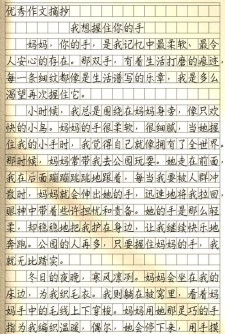 优秀作文摘抄
我想握住你的手
妈妈，你的手，是我记忆中最柔软、最令
人安心的存在。那双手，有着生活打磨的痕迹
每一条细纹都像是生活谱写的乐章，我是多么
渴望再次握住它。
小时候，我总是围绕在妈妈身旁，像只欢
快的小鸟。妈妈的手很柔软，很细腻，当她握
住我的小手时，我觉得自己就像拥有了全世界。
那时候，妈妈常带我去公园玩耍。她走在前面
我在后面蹦蹦跳跳地跟着，每当我要被人群冲
散时，妈妈就会伸出她的手，迅速地将我拉回，
眼神中带着些许担忧和责备。她的手是那么轻
柔，却稳稳地把我护在身边，让我继续快乐地
奔跑。公园的人再多，只要握住妈妈的手，我
就无比踏实。
冬日的夜晚，寒风凛冽。妈妈会坐在我的
床边，为我织毛衣。我则躺在被窝里，看着妈
妈手中的毛线上下穿梭。妈妈用她那灵巧的手
指为我编织温暖，偶尔，她会停下来，用手摸